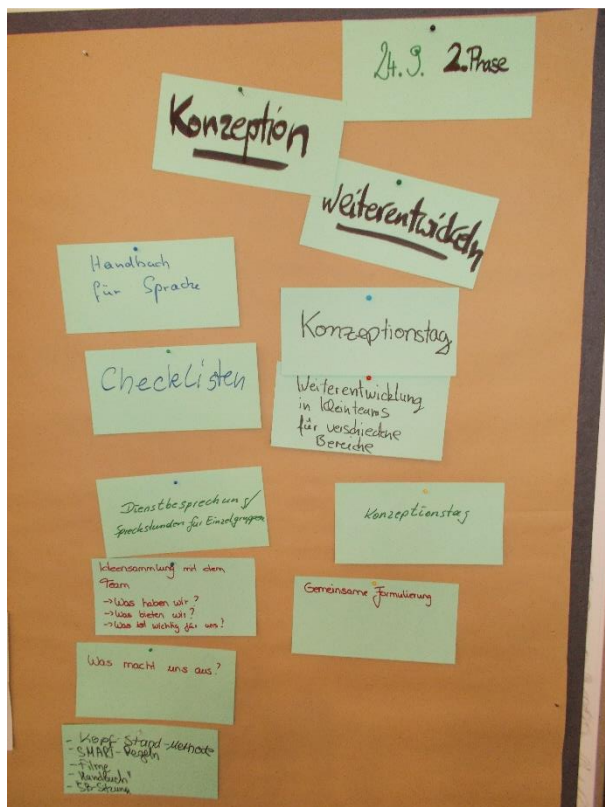 24.9. 2. Phase
Konzeption
weiterentwickeln
Handbuch
für Sprache
Checklisten
Konzeptionstag
Weiterentwicklung
in Kleinteams
für verschiedene
Bereiche
Dienstbesprechung/
Sprechstunden für Einzelgruppen
Konzeptionstag
Ideensammlung mit dem
Team
→ Was haben wir?
→ Was bieten wir?
→ Was ist wichtig für uns?
Gemeinsame Formulierung
Was macht uns aus?
- Kopf-Stand-Methode
- SMART-Regeln
- Filme
- "Handbuch"